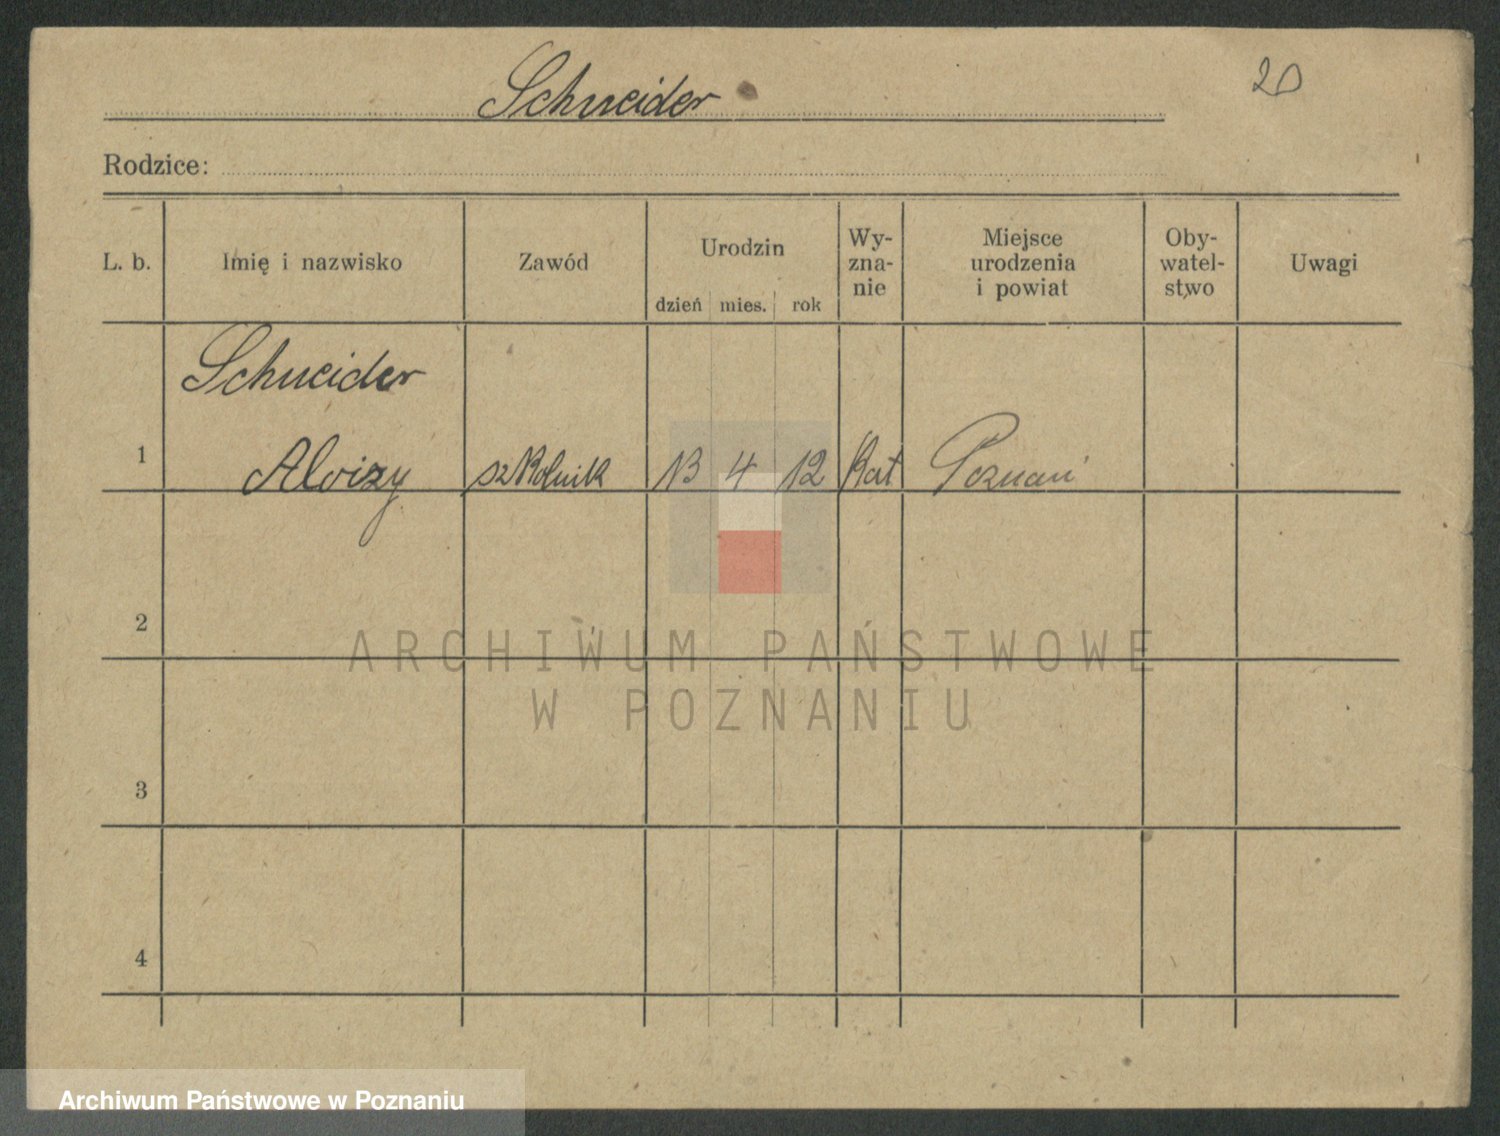 Schneider
20
Rodzice:
L. b.
Imię i nazwisko
Zawód
Urodzin
dzień mies. rok
Wy-
zna-
nie
Miejsce
urodzenia
i powiat
Oby-
watel-
stwo
Uwagi
Schneider
1 Aloizy szkolnik 13 4 12 Kat Poznań
2
3
4
ARCHIWUM PAŃSTWOWE
W POZNANIU
Archiwum Państwowe w Poznaniu